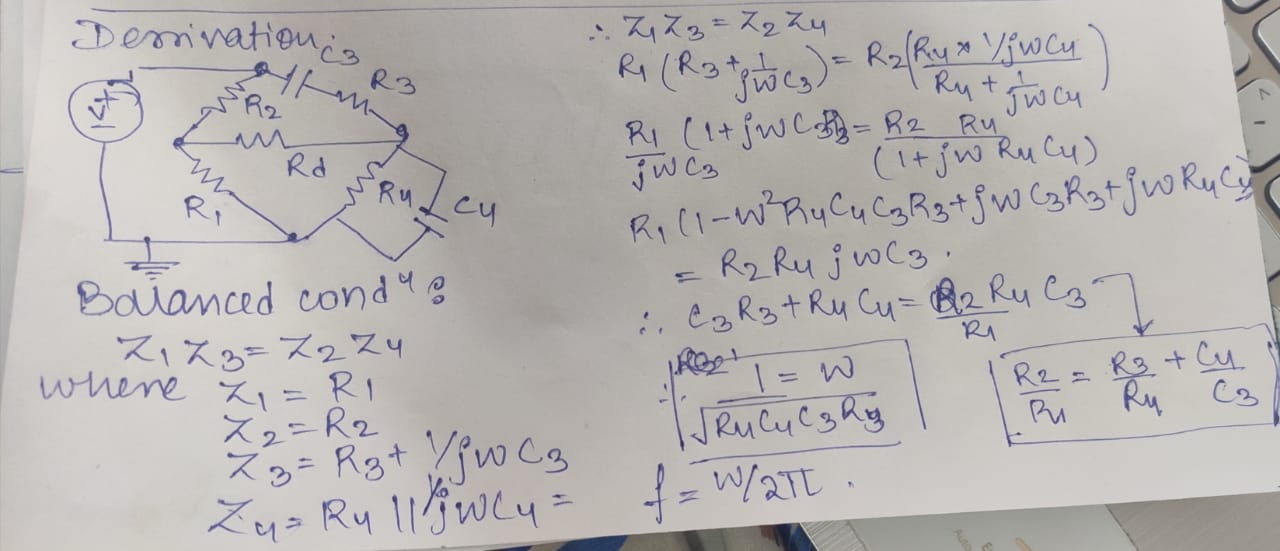 Derrivation:
C3
R3
V
R2
Rd
R1
R4
C4
Balanced condn:
Z1 Z3 = Z2 Z4
where Z1 = R1
Z2 = R2
Z3 = R3 + 1/jwC3
Z4 = R4 || 1/jwC4 =
∴ Z1 Z3 = Z2 Z4
R1 (R3 + 1/jwC3) = R2 (R4 x 1/jwC4 / R4 + 1/jwC4)
R1/jwC3 (1 + jwC3R3 = R2 R4/(1 + jw R4 C4)
R1 (1 - w²R4C4C3R3 + jwC3R3 + jwR4C4)
= R2 R4 jwC3.
∴ C3 R3 + R4 C4 = R2 R4 C3/R1
∴ 1/√R4C4C3R3 = w
R2/R1 = R3/R4 + C4/C3
f = w/2π.